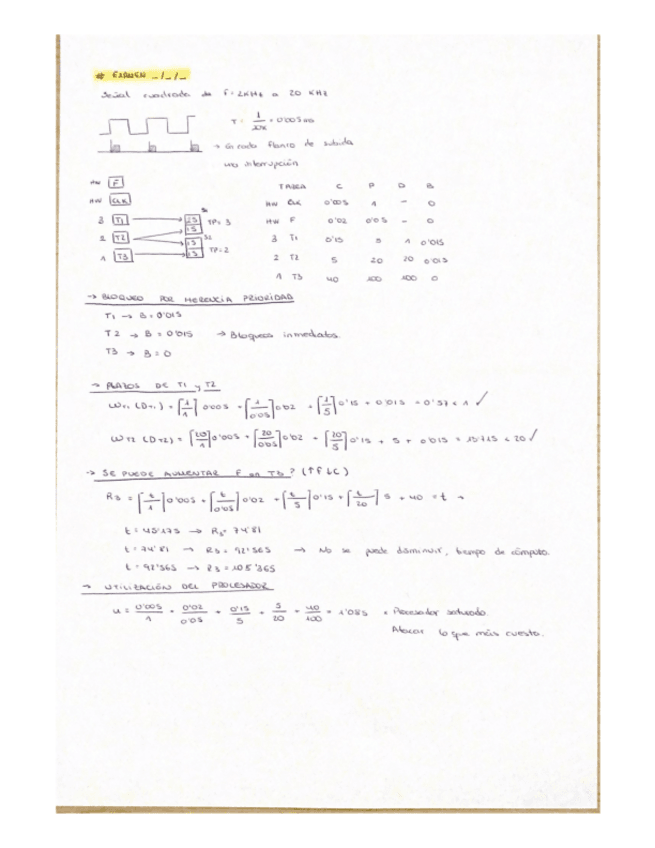 # EXAMEN _/_/_
Señal cuadrada de f = 2KHz a 20 KHz
T = 1/20K = 0'005 ms
→ En cada flanco de subida
una interrupción
HW F
HW CLK
3 T1
2 T2
1 T3
S1
1S
1S TP = 3
S2
1S
1S TP = 2
TAREA C P D B
HW CLK 0'005 1 - 0
HW F 0'02 0'05 - 0
3 T1 0'15 5 1 0'015
2 T2 5 20 20 0'015
1 T3 40 100 100 0
→ BLOQUEO POR HERENCIA PRIORIDAD
T1 → B = 0'015
T2 → B = 0'015 → Bloqueos inmediatos.
T3 → B = 0
→ PLAZOS DE T1 y T2
WT1 (DT1) = ⌈1/1⌉ 0'005 + ⌈1/0'05⌉ 0'02 + ⌈1/5⌉ 0'15 + 0'015 = 0'57 < 1 ✓
WT2 (DT2) = ⌈20/1⌉ 0'005 + ⌈20/0'05⌉ 0'02 + ⌈20/5⌉ 0'15 + 5 + 0'015 = 13'715 < 20 ✓
→ SE PUEDE AUMENTAR F en T3? (↑F ↓C)
R3 = ⌈t/1⌉ 0'005 + ⌈t/0'05⌉ 0'02 + ⌈t/5⌉ 0'15 + ⌈t/20⌉ 5 + 40 = t →
t = 45'175 → R3 = 74'81
t = 74'81 → R3 = 92'365 → No se puede disminuir, tiempo de cómputo.
t = 92'365 → R3 = 105'365
→ UTILIZACIÓN DEL PROCESADOR
u = 0'005/1 + 0'02/0'05 + 0'15/5 + 5/20 + 40/100 = 1'085 → Procesador saturado.
Atacar lo que más cuesta.